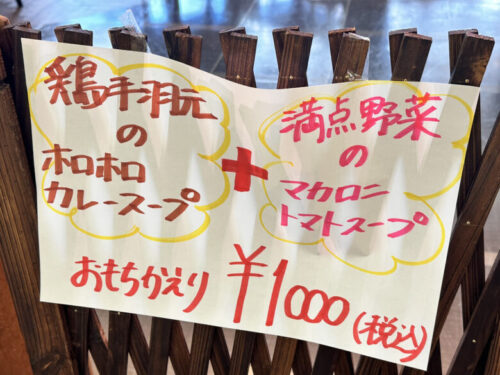 鶏手羽元
の
ホロホロ
カレースープ
+
満点野菜
の
マカロニ
トマトスープ
おもちかえり ¥1000(税込)